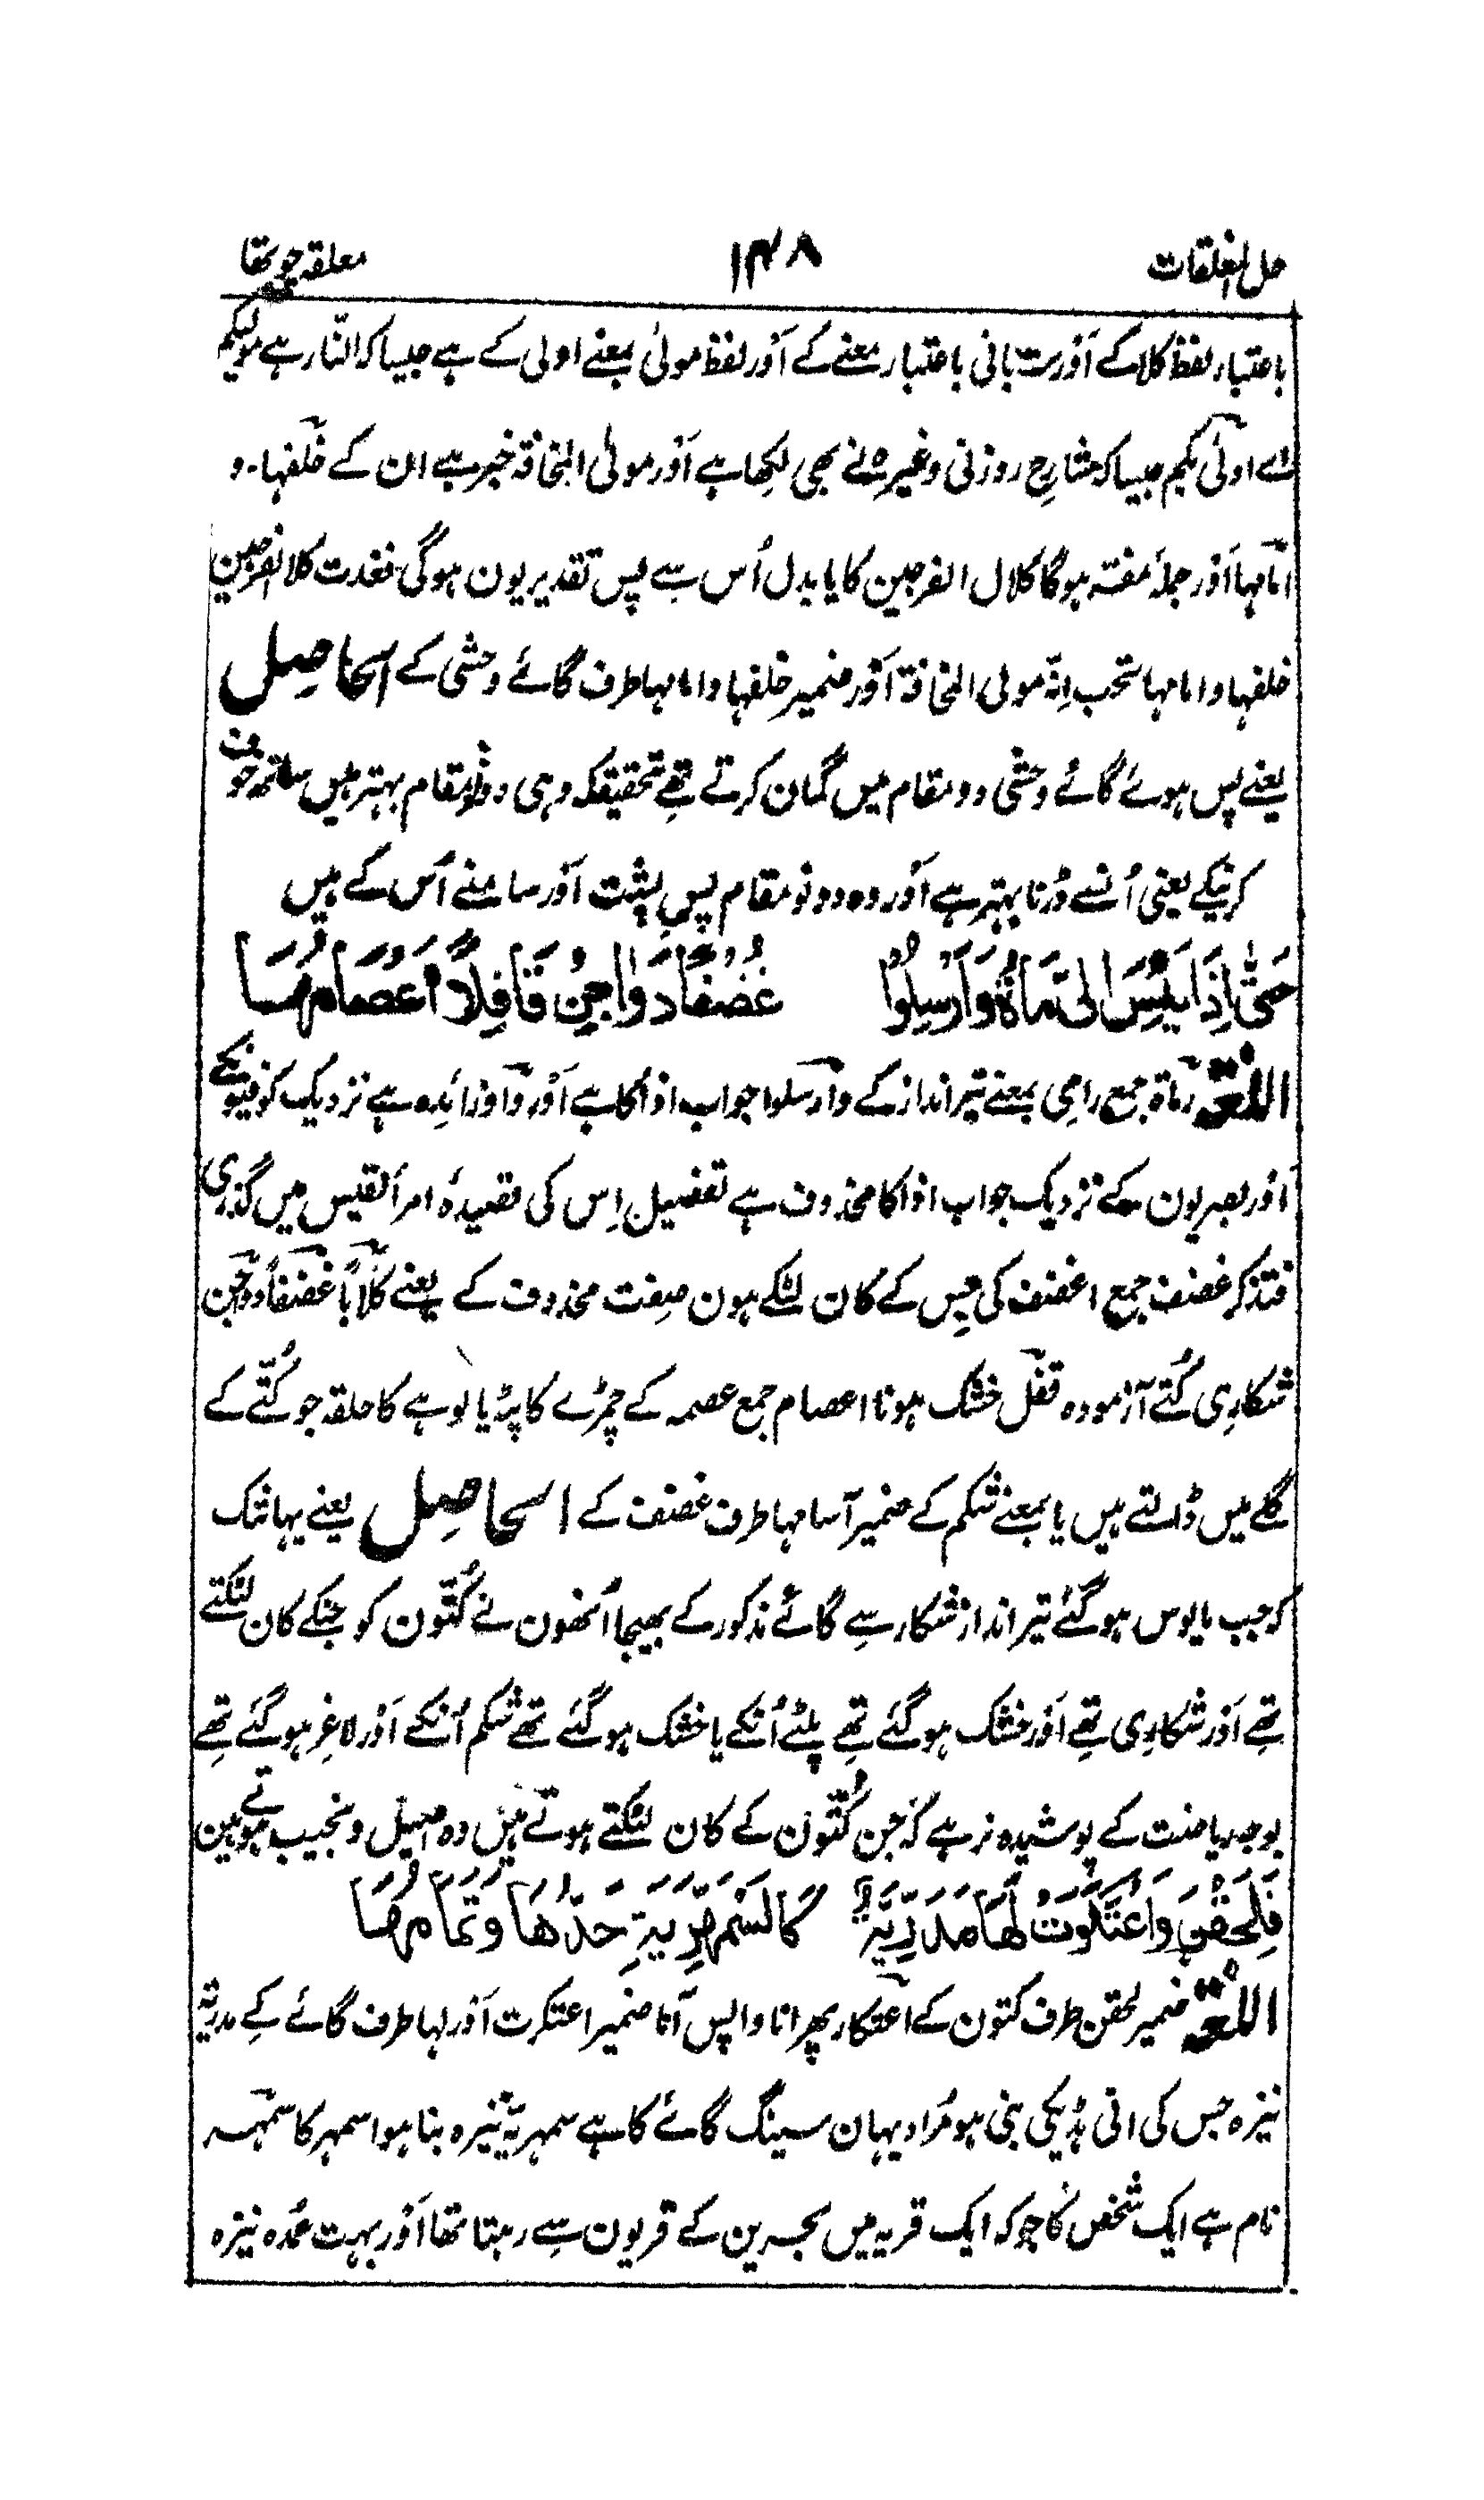 حل المغلقات ۱۴۸ معلقہ چوتھا
باعتبار لفظ کلا کے اَور ست بانی باعتبار معنے کے اَور لفظ مولیٰ بمعنے اولی کے ہے جیسا کہ النّار ہے مولیکم
اے اولی بکم جیسا کہ شارح زوزنی وغیرہ نے بھی لکھا ہے اَور مولی المخافۃ خبر ہے ان کے خلفہا۔ و
امامہا اَور جملہ مفتہ ہوگا کلال الفرجین کا یا بدل اُس سے پس تقدیر یون ہوگی فغدت کلا الفرجین
خلفہا و امامہا تحسب انہ مولی المخافۃ اَور ضمیر خلفہا و امامہا طرف گائے وحشی کے الحاصِل
یعنے پس ہوئے گائے وحشی دو مقام میں گمان کرتے تھے تحقیقکہ وہی دونو مقام بہتر ہیں ساتھ خوف
کرنیکے یعنی اُنسے ڈرنا بہتر ہے اَور وہ دونو مقام پسِ پشت اَور سامنے اُس کے ہیں
حَتّٰی اِذَا یَئِسَ الرُّمَاۃُ وَاَرْسَلُوْا غُضْفًا دَوَاجِنَ قَافِلًا اَعْصَامُہَا
اللغۃ رماۃ جمع رامی بمعنے تیر انداز کے وارسلوا جواب اذا کا ہے اَور واو زائدہ ہے نزدیک کوفیونکے
اَور بصریون کے نزدیک جواب اذا کا محذوف ہے تفصیل اِس کی قصیدہٗ امرأ القیس میں گذری
فتذکر غضف جمع اغضف کی جس کے کان لٹکے ہون صفت محذوف کے یعنے کلابًا غضفًا دواجن
شکاری کُتّے آزمودہ قفل خشک ہونا اعصام جمع عصمہ کے چمڑے کا پٹہ یا لوہے کا حلقہ جو کُتّے کے
گلے میں ڈالتے ہیں یا بمعنے شکم کے ضمیر آسامہا طرف غضف کے الحاصِل یعنے یہانتک
کہ جب مایوس ہوگئے تیر انداز شکار سے گائے مذکور کے بھیجا اُنھون نے کُتّون کو جنکے کان لٹکتے
تھے اَور شکاری تھے اَور خشک ہوگئے تھے پٹے اُنکے یا خشک ہوگئے تھے شکم اُنکے اَور لاغر ہوگئے تھے
بوجہ ریاضت کے پوشیدہ نرہے کہ جن کُتّون کے کان لٹکتے ہوتے ہیں وہ اصیل و نجیب ہوتے ہین
فَلَحِقْنَ وَاعْتَکَرَتْ لَہَا مَدَرِیَّۃٌ کَالسَّمْہَرِیَّۃِ حَدُّہَا وَتَمَامُہَا
اللغۃ ضمیر لحقن طرف کتون کے اعتکار پھرانا واپس آنا ضمیر اعتکرت اَور لہا طرف گائے کے مدریۃ
نیزہ جس کی انی ہڈیکی بنی ہو مُراد یہان سینگ گائے کا ہے سمہریۃ نیزہ بنا ہوا سمہر کا سمہر
نام ہے ایک شخص کا جو کہ ایک قریہ میں بحرین کے قریون سے رہتا تھا اَور بہت عمدہ نیزہ